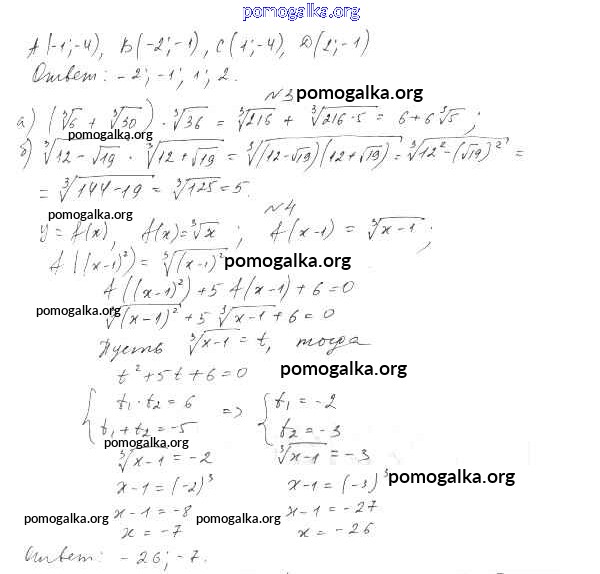 pomogalka.org
A(-1;-4), B(-2;-1), C(1;-4), D(2;-1)
Ответ: -2; -1; 1; 2.
№3 pomogalka.org
а) (∛6 + ∛30) · ∛36 = ∛216 + ∛(216·5) = 6 + 6∛5;
pomogalka.org
б) ∛(12 - √19) · ∛(12 + √19) = ∛((12 - √19)(12 + √19)) = ∛(12² - (√19)²) =
= ∛(144 - 19) = ∛125 = 5.
pomogalka.org
№4
y = f(x), f(x) = ∛x; f(x-1) = ∛(x-1);
f((x-1)²) = ∛(x-1)² pomogalka.org
f((x-1)²) + 5f(x-1) + 6 = 0
pomogalka.org
∛(x-1)² + 5∛(x-1) + 6 = 0
Пусть ∛(x-1) = t, тогда
pomogalka.org
t² + 5t + 6 = 0
{ t₁ · t₂ = 6 => { t₁ = -2
t₁ + t₂ = -5 t₂ = -3
pomogalka.org
∛(x-1) = -2 ∛(x-1) = -3
x - 1 = (-2)³ x - 1 = (-3)³ pomogalka.org
x - 1 = -8 x - 1 = -27
pomogalka.org pomogalka.org
x = -7 x = -26
Ответ: -26; -7.